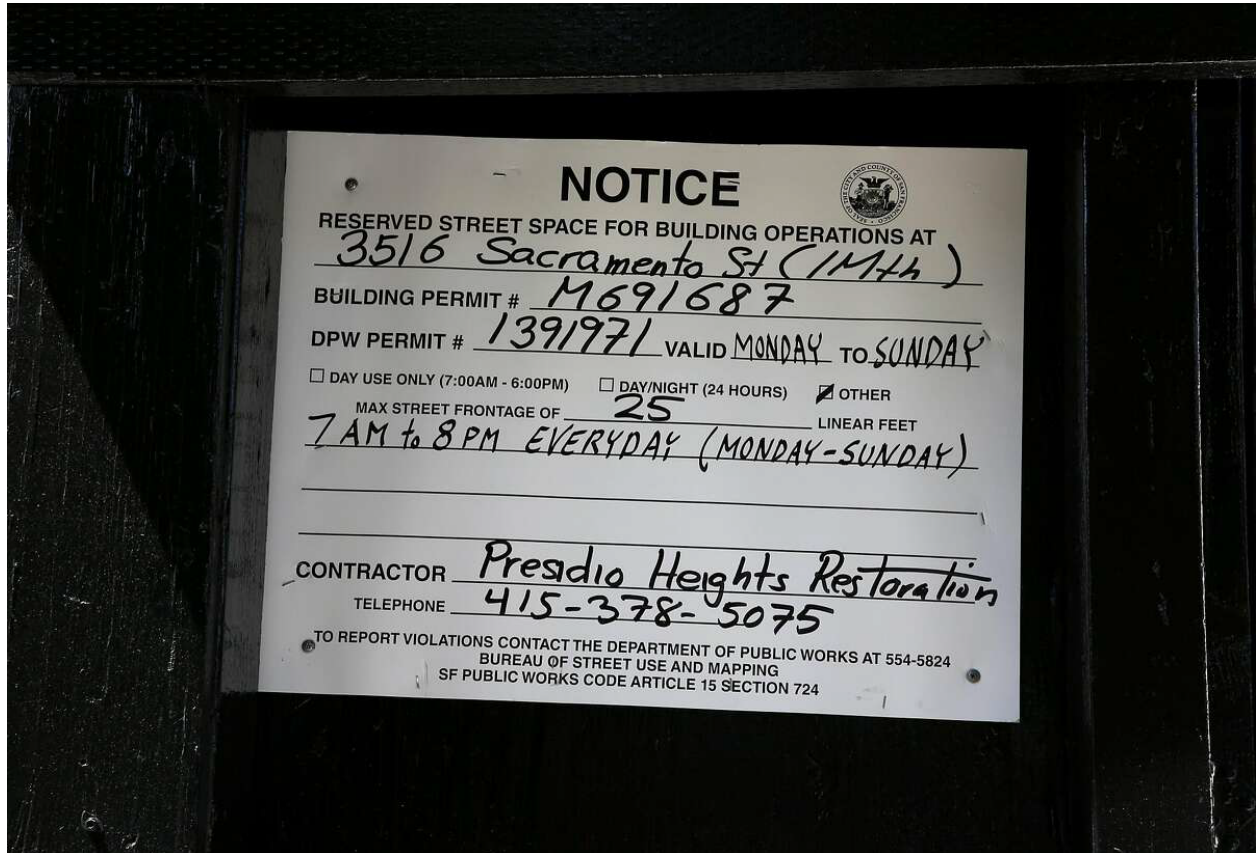 NOTICE
SEAL OF THE CITY AND COUNTY OF SAN FRANCISCO
RESERVED STREET SPACE FOR BUILDING OPERATIONS AT
3516 Sacramento St (1Mth)
BUILDING PERMIT # M691687
DPW PERMIT # 1391971 VALID MONDAY TO SUNDAY
DAY USE ONLY (7:00AM - 6:00PM) DAY/NIGHT (24 HOURS) OTHER
MAX STREET FRONTAGE OF 25 LINEAR FEET
7 AM to 8 PM EVERYDAY (MONDAY-SUNDAY)
CONTRACTOR Presidio Heights Restoration
TELEPHONE 415-378-5075
TO REPORT VIOLATIONS CONTACT THE DEPARTMENT OF PUBLIC WORKS AT 554-5824
BUREAU OF STREET USE AND MAPPING
SF PUBLIC WORKS CODE ARTICLE 15 SECTION 724